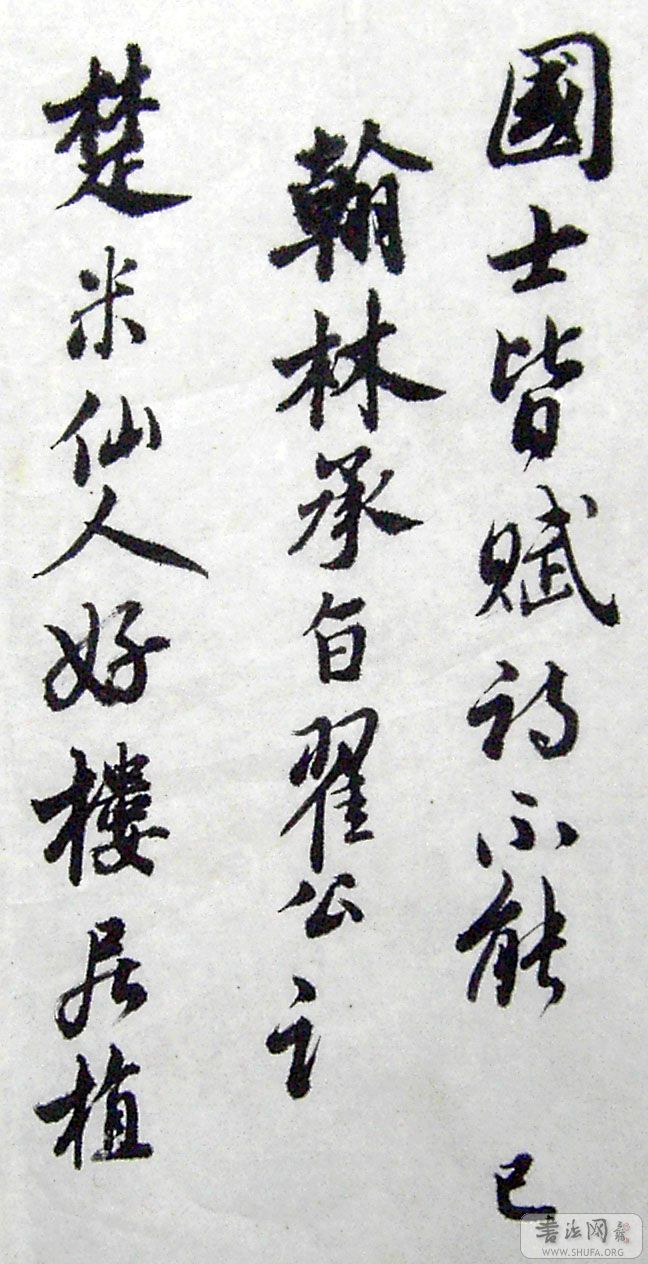 國士皆賦詩不能已
翰林承旨翟公
楚米仙人好樓居植
書法网
WWW.SHUFA.ORG